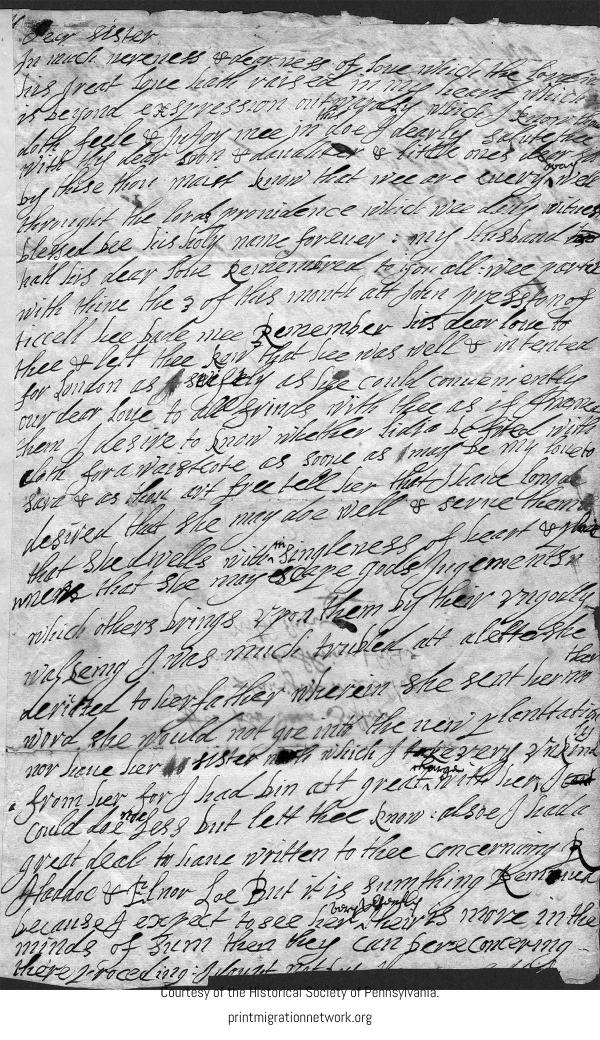 Dear Sister
In much nereness & degrness of love which the Lord in
his great love hath raised in my heart which
is beyond exspression outwardly which I
doth feele & Injoy mee in this doe I dearly salute thee
with thy dear soon & daughter & little ones
by these thou maist know that wee are euery way well
throught the lords prouidence which wee daly witnes
blessed bee his holy name foreuer : my husband
hath his dear loue Remembred to you all : wee parted
with thine the 3 of this month att John presston of
hee bade mee Remember his dear loue to
thee & lett thee kow that hee was well & intented
for London as as hee could conueniently
our dear loue to all frinds with thee as if I named
them I desire to know whether lidia be with
cloth for a waistcote as soone as may be my loue to
sara & as thou art free tell her that I haue longe
desired that she may doe well & serue them
that shee dwells with in singleness of heart &
that she may escape gods Jugements
which others brings vpon them by their vngodly
I was much trubled att a letter she
to her father wherein she sent her mother
word she would not goe into the new plantation
nor haue her sister which I very vnkind
from her for I had bin att great charge with her I
could doe noe less but lett thee know : alsoe I had a
great deal to haue written to thee concerning R
Haddoc & Elnor Loe But it is sumthing Remoued
because I expect to see her very shortly their is more in the
minds of sum then they can bere concering
there proceding : I
Courtesy of the Historical Society of Pennsylvania.
printmigrationnetwork.org